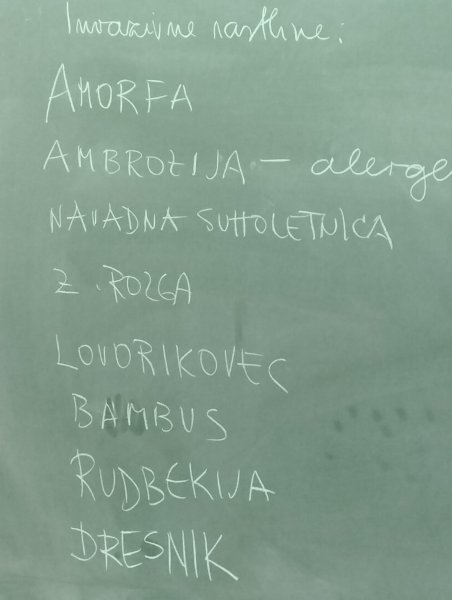 Invazivne rastline:
AMORFA
AMBROZIJA - alerge
NAVADNA SUHOLETNICA
Z. ROZGA
LOVORIKOVEC
BAMBUS
RUDBEKIJA
DRESNIK